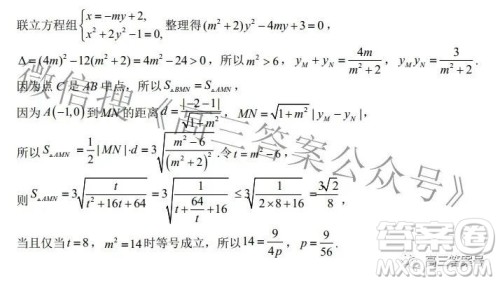 联立方程组{x=-my+2, x²+2y²-1=0, 整理得(m²+2)y²-4my+3=0,
Δ=(4m)²-12(m²+2)=4m²-24>0, 所以m²>6, y_M+y_N=4m/(m²+2), y_M y_N=3/(m²+2).
因为点C是AB中点, 所以S_△BMN=S_△AMN,
因为A(-1,0)到MN的距离d=|-2-1|/√(1+m²), MN=√(1+m²)|y_M-y_N|,
所以S_△AMN=1/2|MN|·d=3√((m²-6)/(m²+2)²).令t=m²-6,
则S_△AMN=3√(t/(t²+16t+64))=3√(1/(t+64/t+16))≤3√(1/(2×8+16))=3√2/8,
当且仅当t=8, m²=14时等号成立, 所以14=9/(4p), p=9/56.
微信搜《高三答案公众号》
答案圈
MXQE.COM
高三答案号